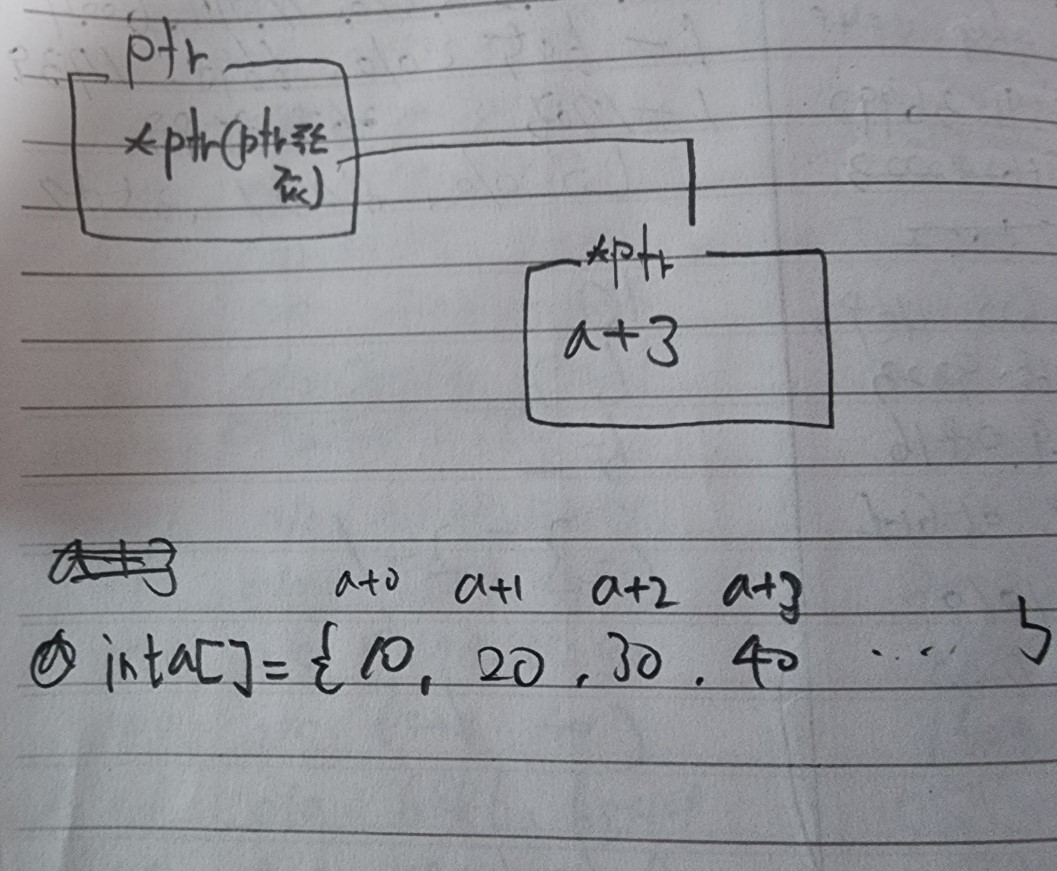 ptr
*ptr(ptr
*ptr
a+3
a+3
a+0 a+1 a+2 a+3
int a[] = { 10, 20, 30, 40 ..... }